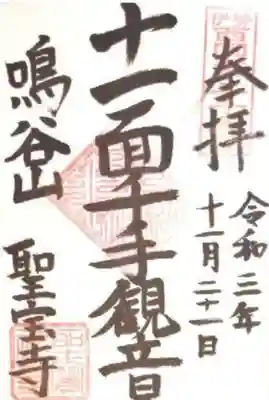 奉拝
令和三年
十一月二十一日
十一面千手観音
鳴谷山
聖宝寺